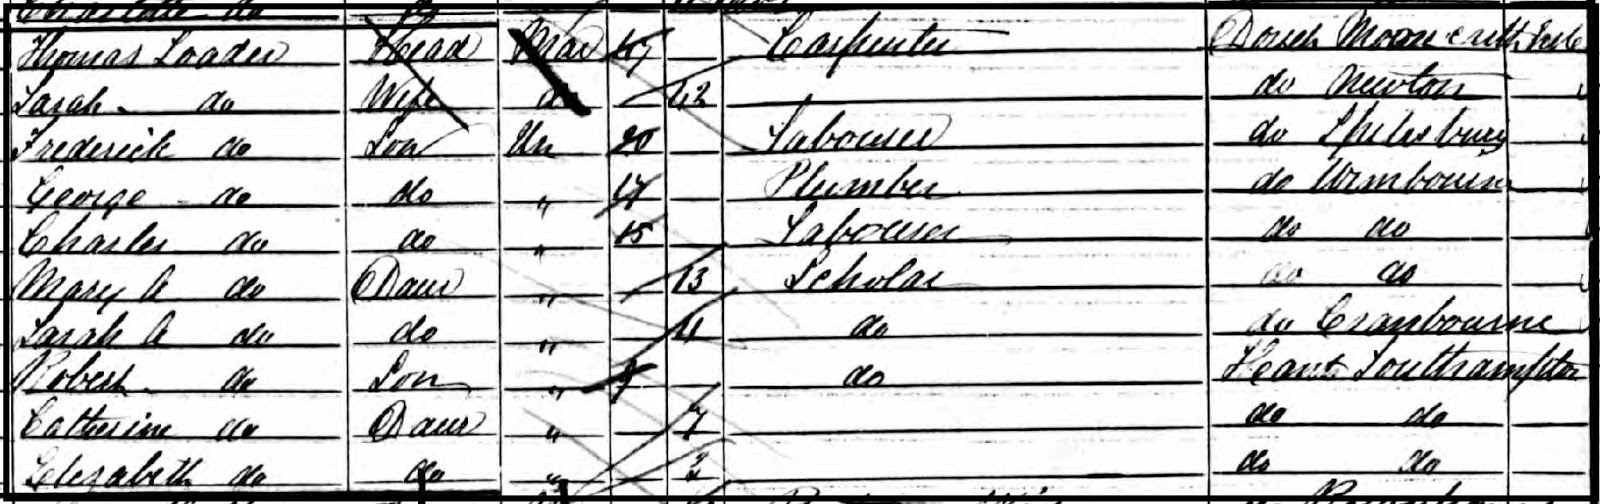 Charlotte do do
Thomas Loader Head Mar 47 Carpenter Dorset
Sarah do Wife do 42 do Newton
Frederick do Son Un 20 Labourer do
George do do " 17 Plumber do Wimbourne
Charles do do " 15 Labourer do do
Mary A do Daur " 13 Scholar do do
Sarah A do do " 11 do do Cranbourne
Robert do Son " 9 do Hants Southampton
Catherine do Daur " 7 do do
Elizabeth do do " 2 do do